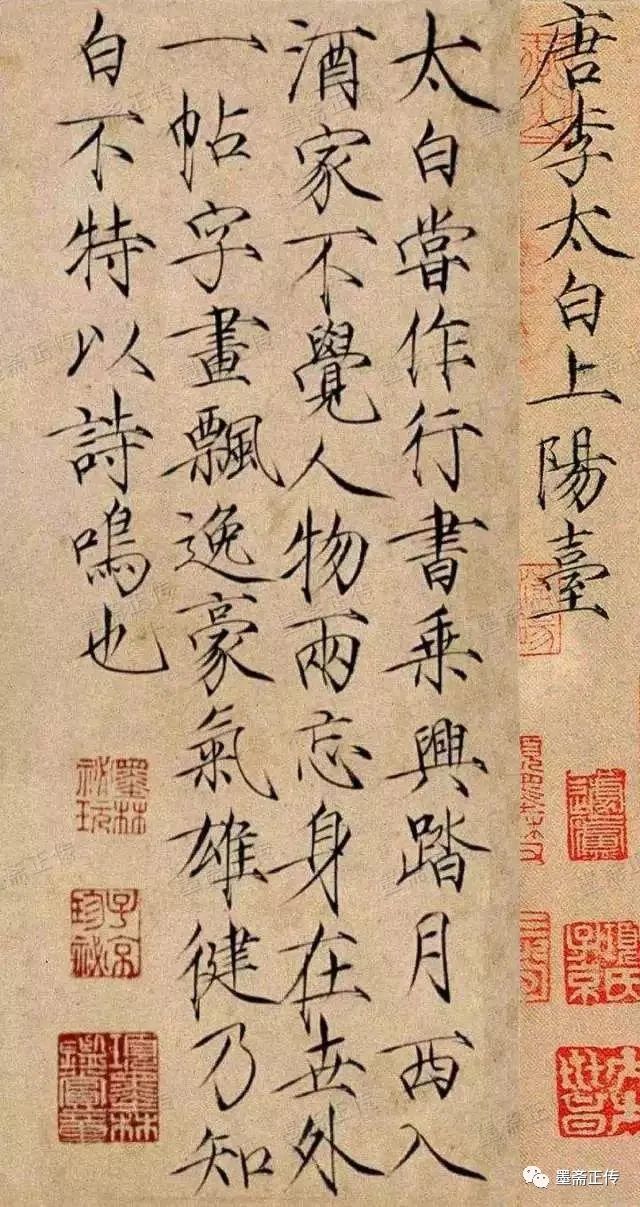 唐李太白上陽臺
太白嘗作行書乗興踏月西入
酒家不覺人物兩忘身在世外
一帖字畫飄逸豪氣雄健乃知
白不特以詩鳴也
墨林祕玩
子京珍祕
項墨林鑑賞章
項氏子京
墨斋正传